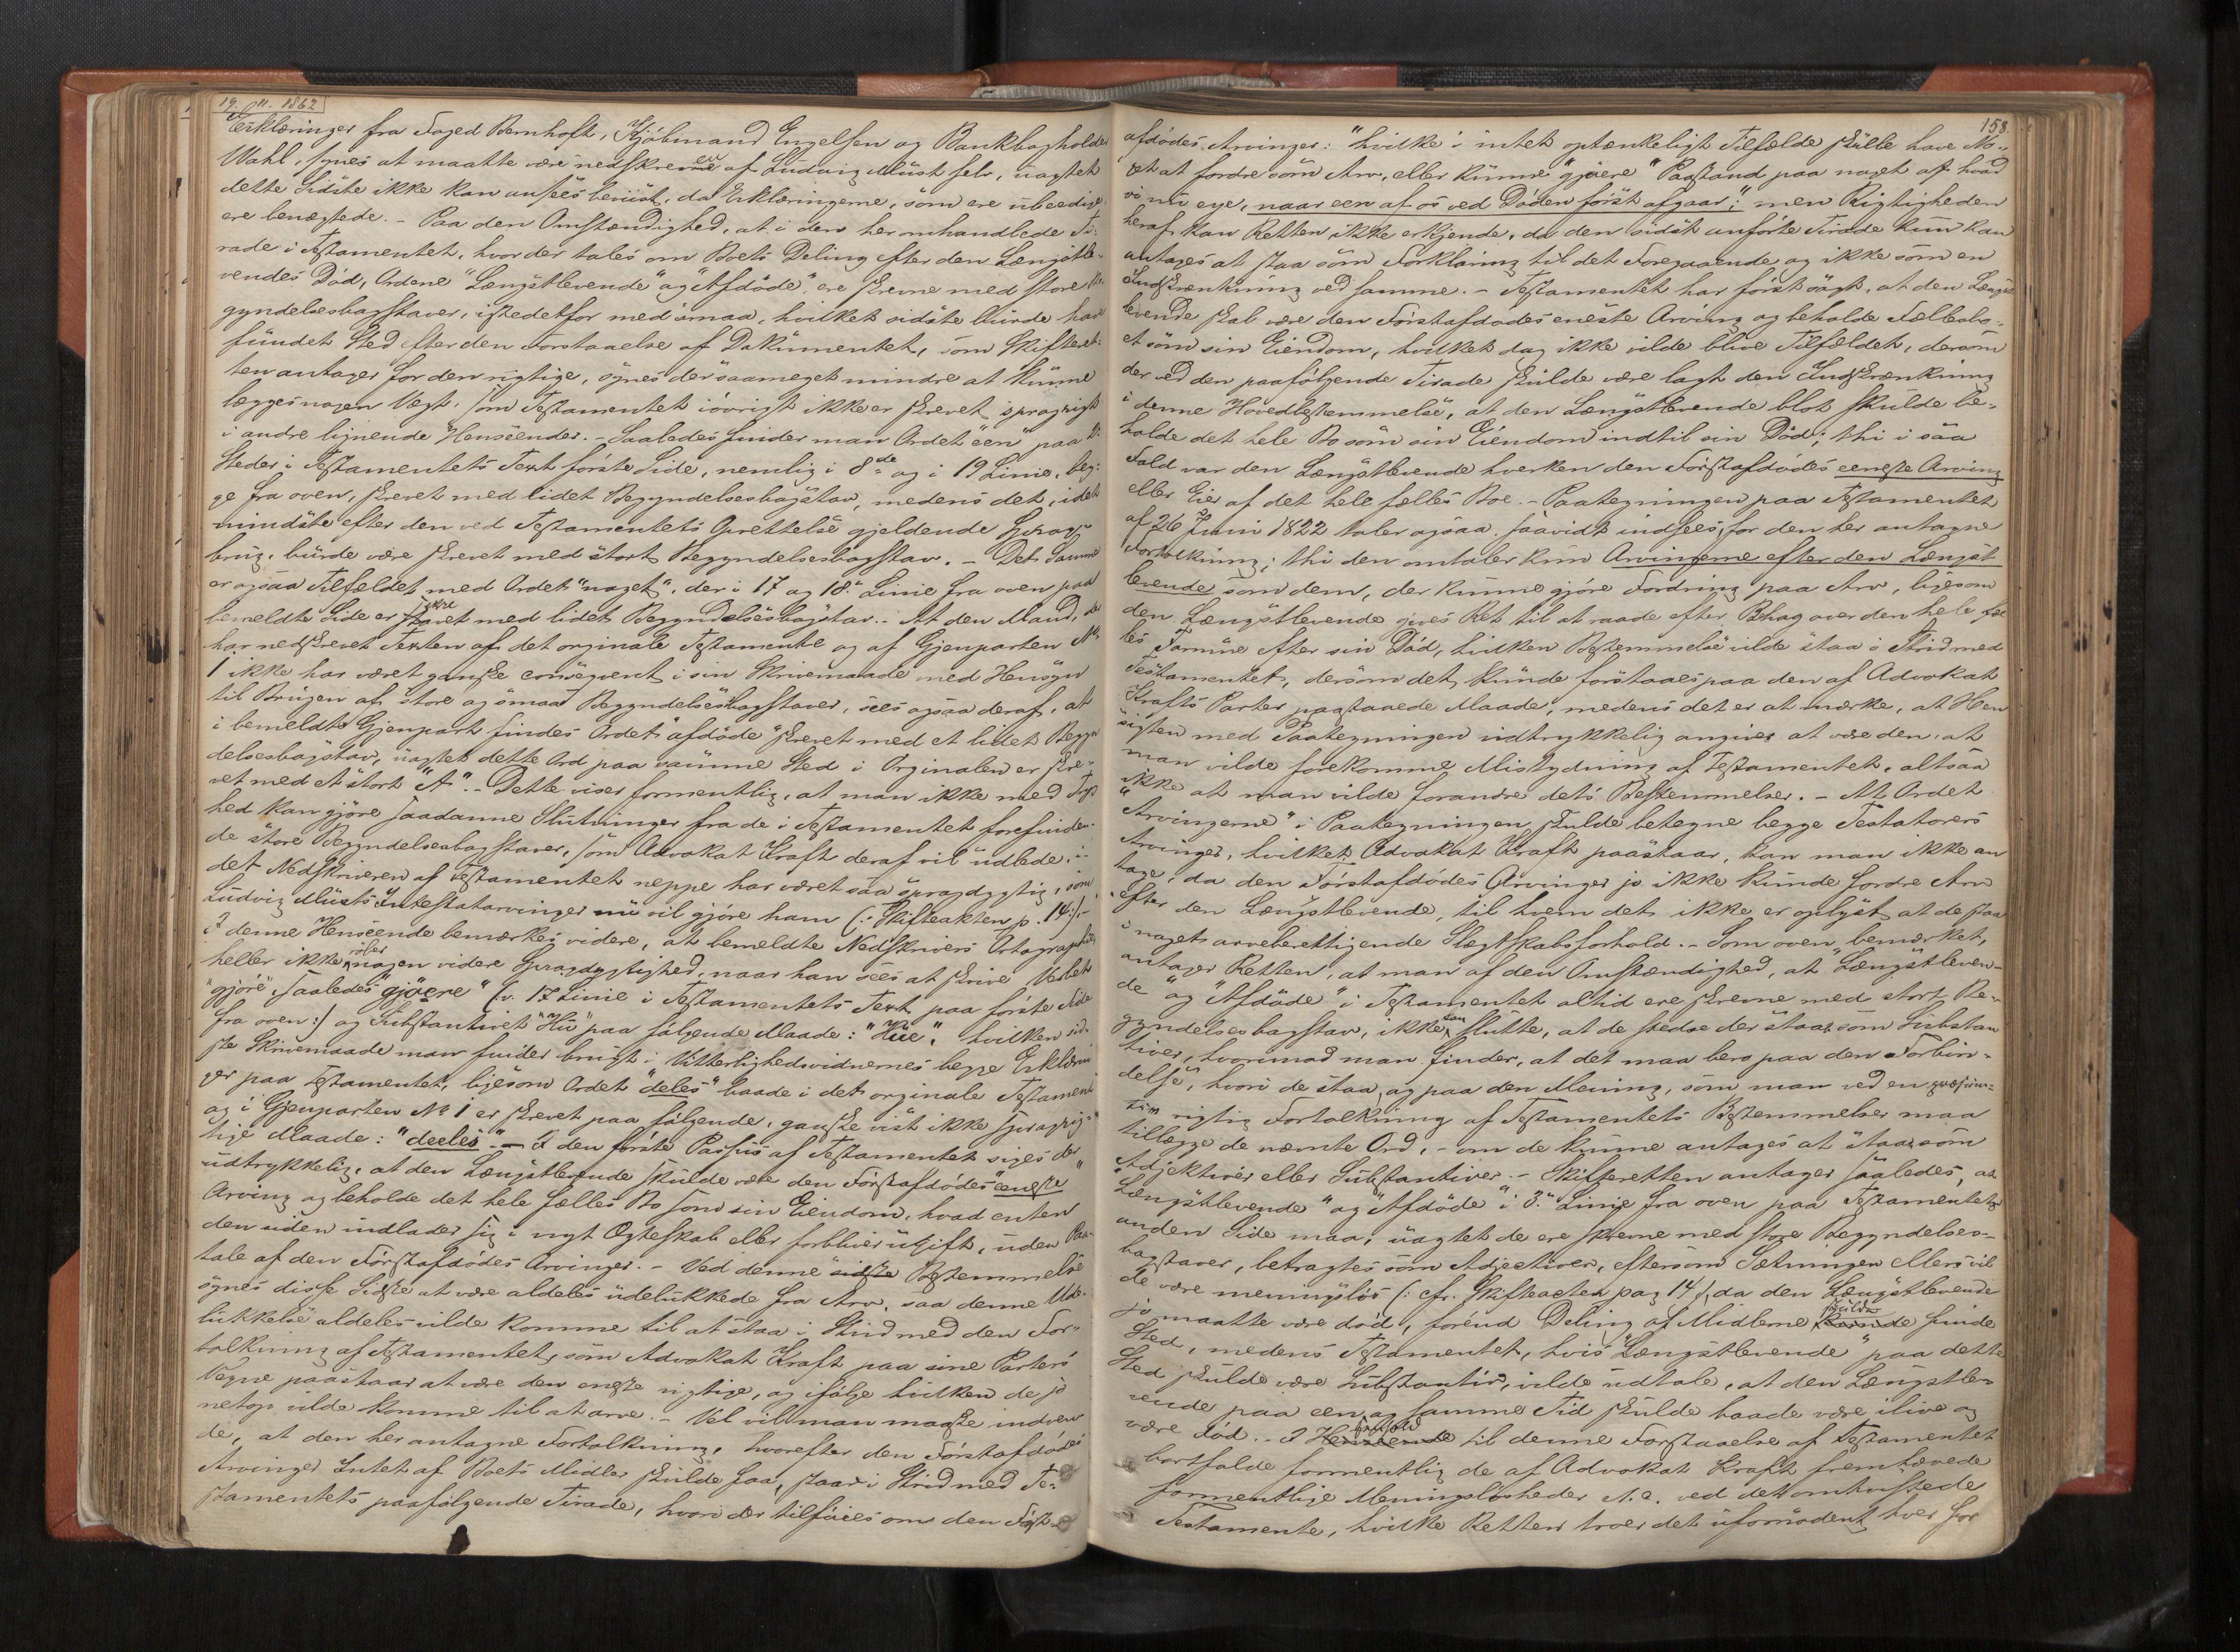 19. 11. 1862
Erklæringer fra Foged Bernhoft, Kjøbmand Engelsen og Bankbogholder
Wahl, synes at maatte være nedskreven af Ludvig Müst selv, uagtet
dette Sidste ikke kan ansees beviist, da Erklæringerne, som ere ubeedigede
ere benægtede. - Paa den Omstændighed, at i den her omhandlede Ti-
rade i Testamentet, hvor der tales om Boets Deling efter den Længstle-
vendes Død, Ordene "Længstlevende" og "Afdøde" ere skrevne med store Be-
gyndelsesbogstaver, istedetfor med smaa, hvilket sidste burde have
fundet Sted efter den Forstaaelse af Dokumentet, som Skifteret-
ten antager for den rigtige, synes der saameget mindre at kunne
lægges nogen Vægt, som Testamentet iøvrigt ikke er skrevet sprogrigt
i andre lignende Henseender. - Saaledes finder man Ordet "een" paa to
Steder i Testamentets Text første Side, nemlig i 8de og i 19 Linie, beg-
ge fra oven, skrevet med lidet Begyndelsesbogstav, medens det, i det
mindste efter den ved Testamentets Oprettelse gjeldende Sprog-
brug, burde være skrevet med stort Begyndelsesbogstav. - Det Samme
er ogsaa Tilfældet med Ordet "noget", der i 17 og 18de Linie fra oven paa
bemeldte Side er skrevet med lidet Begyndelsesbogstav. - At den Mand, der
har nedskrevet Texten af det orginale Testamente og af Gjenparten No
1 ikke har været ganske conseqvent i sin Skrivemaade med Hensyn
til Brugen af store og smaa Begyndelsesbogstaver, sees ogsaa deraf, at
i bemeldte Gjenpart findes Ordet "afdøde" skrevet med et lidet Begyn
delsesbogstav, uagtet dette Ord paa samme Sted i Orginalen er skre-
vet med et stort "A". - Dette viser formentlig, at man ikke med Tryg
hed kan gjøre saadanne Slutninger fra de i Testamentet forefinden-
de store Begyndelsesbogstaver, som Advokat Kraft deraf vil udlede, i-
det Nedskriveren af Testamentet neppe har været saa sprogdygtig, som
Ludvig Müsts Intestatarvinger nu vil gjøre ham (: Skifteakten p. 14 :) -
I denne Henseende bemærkes videre, at bemeldte Nedskrivers Ortographie
heller ikke røber nogen videre Sprogdygtighed, naar han sees at skrive Verbet
"gjøre" saaledes "gjøere" (v. 17 Linie i Testamentets Text paa første Side
fra oven :) og Substantivet "Hu" paa følgende Maade: "Hue", hvilken sid-
ste Skrivemaade man finder brugt i Vitterlighedsvidnernes begge Erklærin
ger paa Testamentet, ligesom Ordet "deles" baade i det orginale Testament
og i Gjenparten No 1 er skrevet paa følgende, ganske vist ikke sprogrig-
tige Maade: "deeles" - I den første Passus af Testamentet siges der
udtrykkelig, at den Længstlevende skulde være den Førstafdødes "eeneste"
Arving og beholde det hele fælles Bo som sin Eiendom, hvad enten
den siden indlader sig i nyt Ægteskab eller forbliver ugift, uden Paa-
tale af den Førstafdødes Arvinger. - Ved denne sidste Bestemmelse
synes disse Sidste at være aldeles udelukkede fra Arv, saa denne Ude-
lukkelse aldeles vilde komme til at staa i Strid med den For-
tolkning af Testamentet, som Advokat Kraft paa sine Parters
Vegne paastaar at være den eneste rigtige, og ifølge hvilken de jo
netop vilde komme til at arve. - Vel vil man maaske indven
de, at den her antagne Fortolkning, hvorefter den Førstafdødes
Arvinger Intet af Boets Midler skulde faa, staar i Strid med Te-
stamentets paafølgende Tirade, hvori der tilføies om den Først-
158.
afdødes Arvinger: "hvilke i intet optænkeligt Tilfælde skulle have No-
get at fordre som Arv, eller kunne "gjøere" Paastand paa noget af hvad
vi nu eye, naar een af os ved Døden først afgaar"; men Rigtigheden
heraf kan Retten ikke erkjende, da den sidst anførte Tirade kun kan
antages at staa som Forklaring til det Foregaaende og ikke som en
Indskrænkning ved samme. - Testamentet har først sagt, at den Længst
levende skal være den Førstafdødes eneste Arving og beholde Fællesbo-
et som sin Eiendom, hvilket dog ikke vilde blive Tilfældet, dersom
der ved den paafølgende Tirade skulde være lagt den Indskrænkning
i denne Hovedbestemmelse, at den Længstlevende blot skulde be-
holde det hele Bo som sin Eiendom indtil sin Død; thi i saa
Fald var den Længstlevende hverken den Førstafdødes eeneste Arving
eller Eier af det hele fælles Boe. - Paategningen paa Testamentet
af 26 Juni 1822 taler ogsaa, saavidt indsees, for den her antagne
Fortolkning; thi den omtaler kun Arvingerne efter den Længst
levende som dem, der kunne gjøre Fordring paa Arv, ligesom
den Længstlevende gives Ret til at raade efter Behag over den hele fæl
les Formue efter sin Død, hvilken Bestemmelse vilde staa i Strid med
Testamentet, dersom det kunde forstaaes paa den af Advokat
Krafts Parter paastaaede Maade, medens det er at mærke, at Hen
sigten med Paategningen udtrykkelig angives at være den, at
man vilde forekomme Mistydning af Testamentet, altsaa
ikke at man vilde forandre dets Bestemmelser. - At Ordet
"Arvingerne" i Paategningen skulde betegne begge Testatorers
Arvinger, hvilket Advokat Kraft paastaar, kan man ikke an
tage, da den Førstafdødes Arvinger jo ikke kunde fordre Arv
efter den Længstlevende, til hvem det ikke er oplyst, at de staa
i noget arveberettigende Slægtskabsforhold. - Som oven bemærket,
antager Retten, at man af den Omstændighed, at "Længstleven-
de" og "Afdøde" i Testamentet altid ere skrevne med stort Be-
gyndelsesbogstav, ikke kan slutte, at de stedse der staa som Substan
tiver, hvorimod man finder, at det maa bero paa den Forbin-
delse, hvori de staa, og paa den Mening, som man ved en præsum-
tiv rigtig Fortolkning af Testamentets Bestemmelser maa
tillægge de nævnte Ord, - om de kunne antages at staa som
Adjektiver eller Substantiver. - Skifteretten antager saaledes, at
"Længstlevende" og "Afdøde" i 3de Linje fra oven paa Testamentets
anden Side maa, uagtet de ere skrevne med store Begyndelses-
bogstaver, betragtes som Adjectiver, eftersom Sætningen ellers vil
de være meningsløs (: cfr. Skifteacten pag 14 :), da den Længstlevende
jo maatte være død, førend Deling af Midlerne skulde finde
Sted, medens Testamentet, hvis "Længstlevende" paa dette
Sted skulde være Substantiv, vilde udtale, at den Længstle-
vende paa een og samme Tid skulde baade være ilive og
være død. - I Henhold til denne Forstaaelse af Testamentet
bortfalde formentlig de af Advokat Kraft fremhævede
formentlige Meningsløsheder A. a. ved det omtvistede
Testamente, hvilke Retten troer det ufornødent hver for